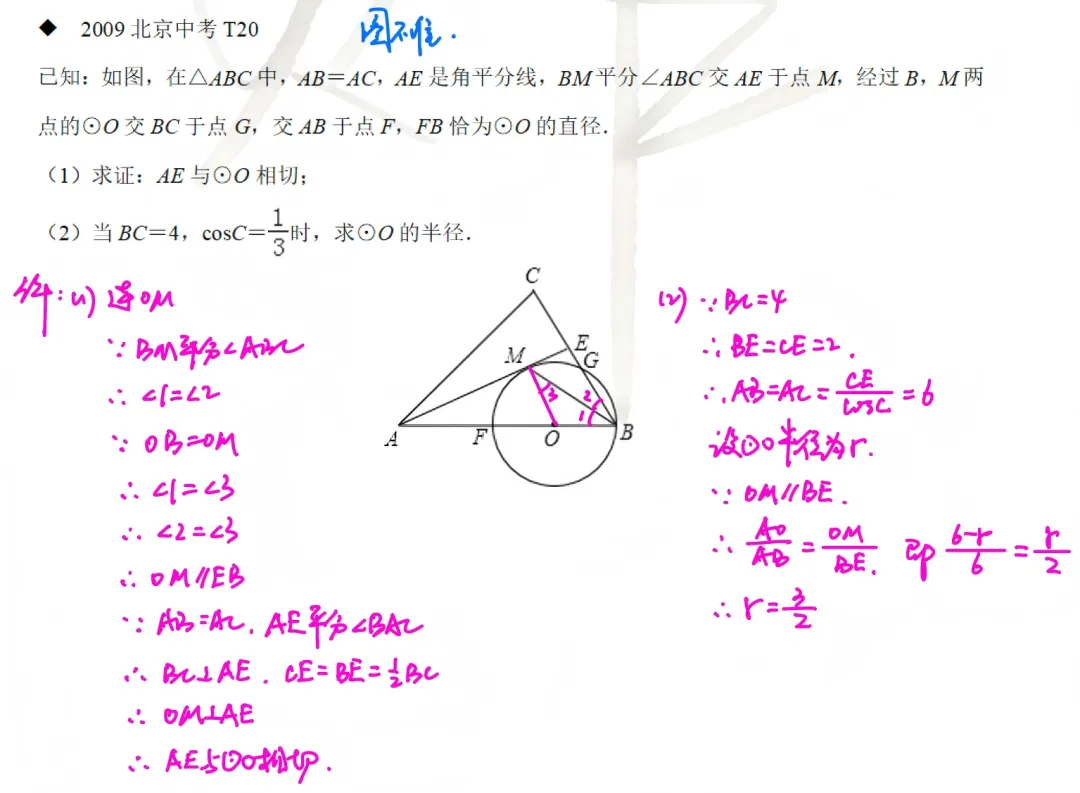 ◆ 2009 北京中考 T20
图不准.
已知:如图,在△ABC 中,AB=AC,AE 是角平分线,BM 平分∠ABC 交 AE 于点 M,经过 B,M 两
点的⊙O 交 BC 于点 G,交 AB 于点 F,FB 恰为⊙O 的直径.
(1)求证:AE 与⊙O 相切;
(2)当 BC=4,cosC=1/3时,求⊙O 的半径.
解:(1) 连OM
∵ BM平分∠ABC
∴ ∠1=∠2
∵ OB=OM
∴ ∠1=∠3
∴ ∠2=∠3
∴ OM∥EB
∵ AB=AC. AE平分∠BAC
∴ BC⊥AE. CE=BE=1/2BC
∴ OM⊥AE
∴ AE与⊙O相切.
C
E
M
G
3
2
1
A
F
O
B
(2) ∵ BC=4
∴ BE=CE=2.
∴ AB=AC=CE/cosC=6
设⊙O半径为r.
∵ OM∥BE.
∴ AO/AB=OM/BE. 即 6-r/6=r/2
∴ r=3/2